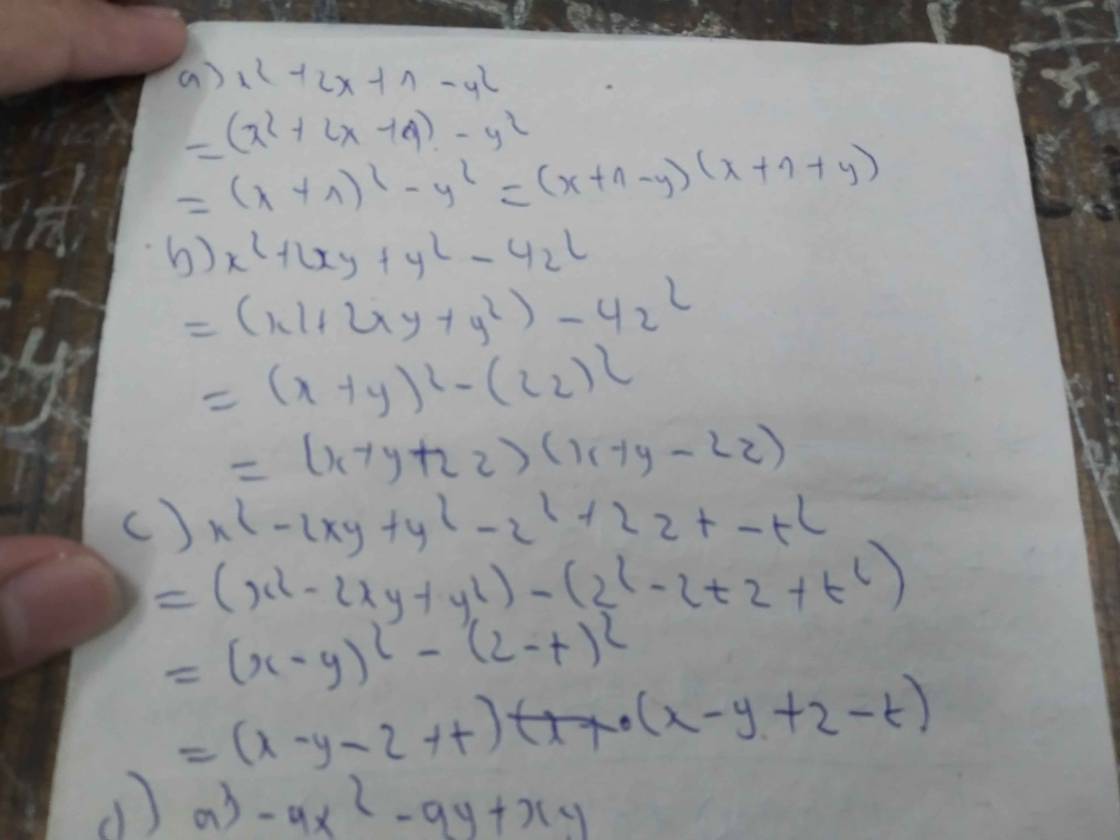 a) x² + 2x + 1 - y²
= (x² + 2x + 1) - y²
= (x + 1)² - y² = (x + 1 - y) (x + 1 + y)
b) x² + 2xy + y² - 4z²
= (x² + 2xy + y²) - 4z²
= (x + y)² - (2z)²
= (x + y + 2z) (x + y - 2z)
c) x² - 2xy + y² - z² + 2zt - t²
= (x² - 2xy + y²) - (z² - 2tz + t²)
= (x - y)² - (z - t)²
= (x - y - z + t) (x - y + z - t)
d) a³ - ax² - ay + xy